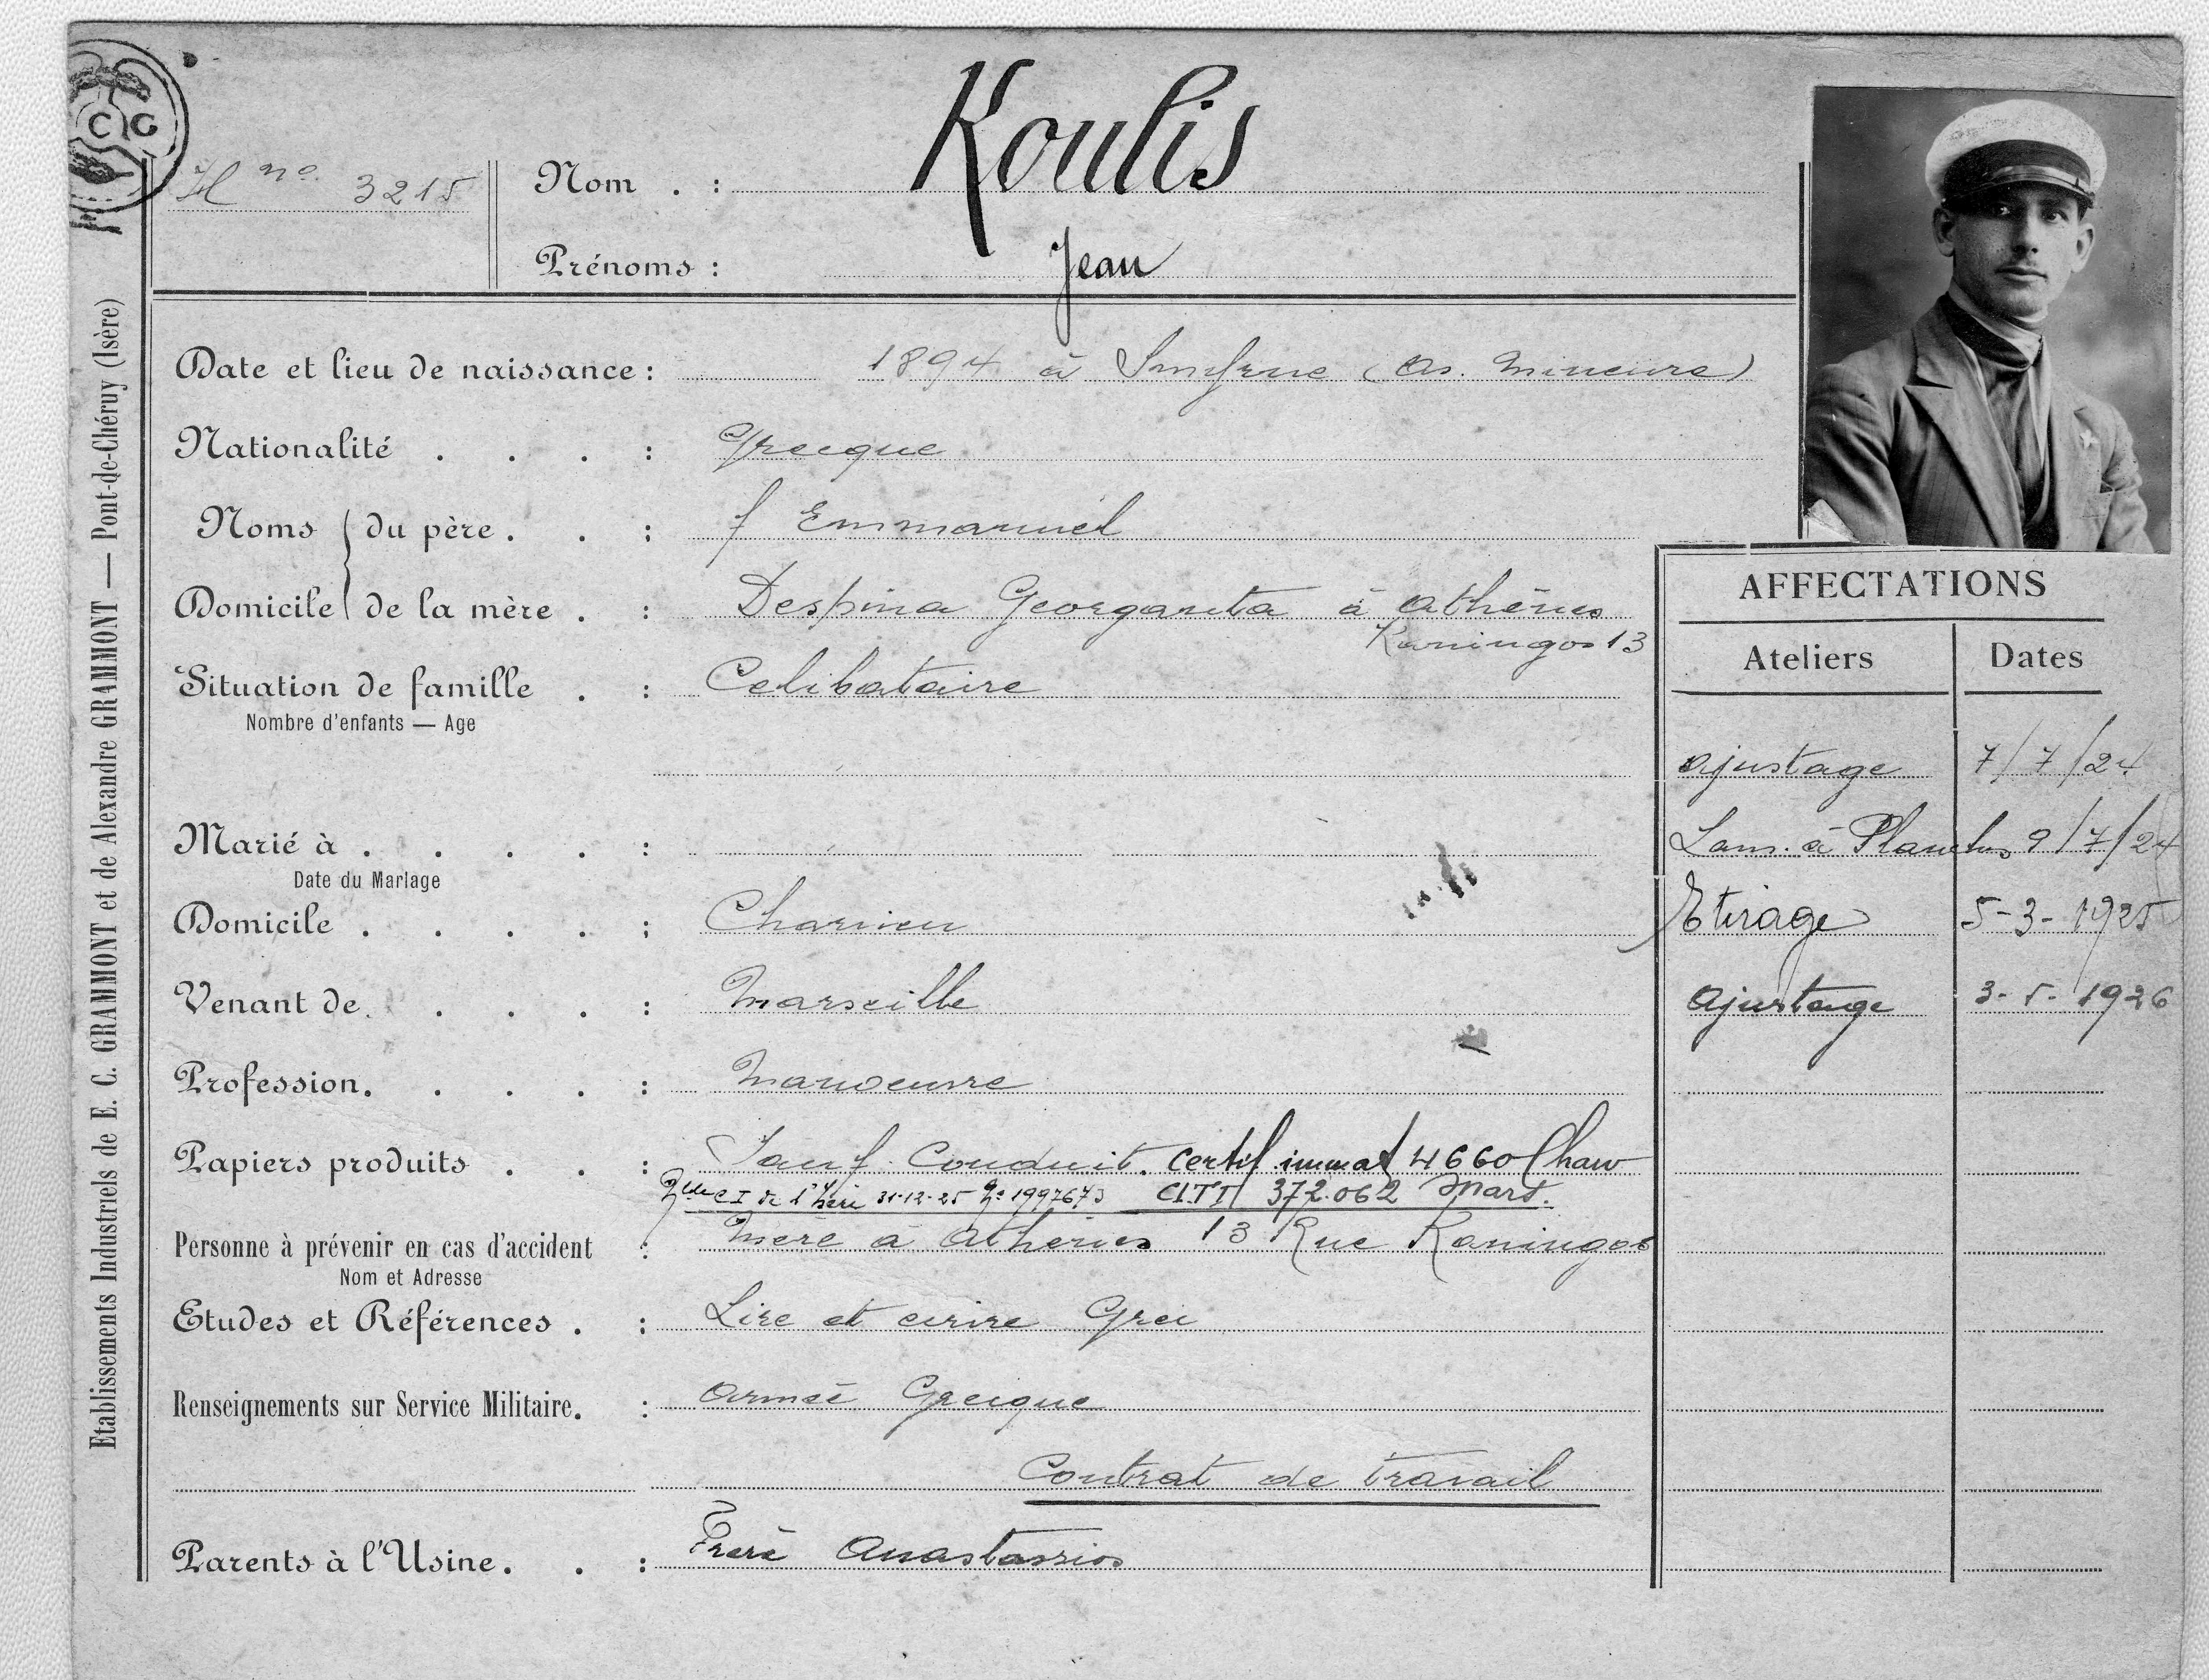 C G
H no. 3215
Nom . : Koulis
Prénoms : Jean
Date et lieu de naissance : 1894 à Smyrne (As. Mineure)
Nationalité . . . : Grecque
Noms du père . . : f Emmanuel
Domicile de la mère . : Despina Georganta à Athènes
Kaningos 13
Situation de famille . : Celibataire
Nombre d'enfants — Age
Marié à . . . . :
Date du Mariage
Domicile . . . . : Charvieu
Venant de . . . : Marseille
Profession . . . . : Manoeuvre
Papiers produits . . : Sauf Conduit. Certif immat 4660 Charv
C I de l'Isère 31-12-25 No 1997673 C.I.T.I 372.062 Mars.
Personne à prévenir en cas d'accident : Mère à Athènes 13 Rue Kaningos
Nom et Adresse
Etudes et Références . : Lire et ecrire Grec
Renseignements sur Service Militaire. : Armée Grecque
Contrat de travail
Parents à l'Usine . . : Frère Anastassios
AFFECTATIONS
Ateliers Dates
Ajustage 7/7/24
Lam. à Planches 9/7/24
Etirage 5-3-1925
Ajustage 3-5-1926
Etablissements Industriels de E. C. GRAMMONT et de Alexandre GRAMMONT — Pont-de-Chéruy (Isère)